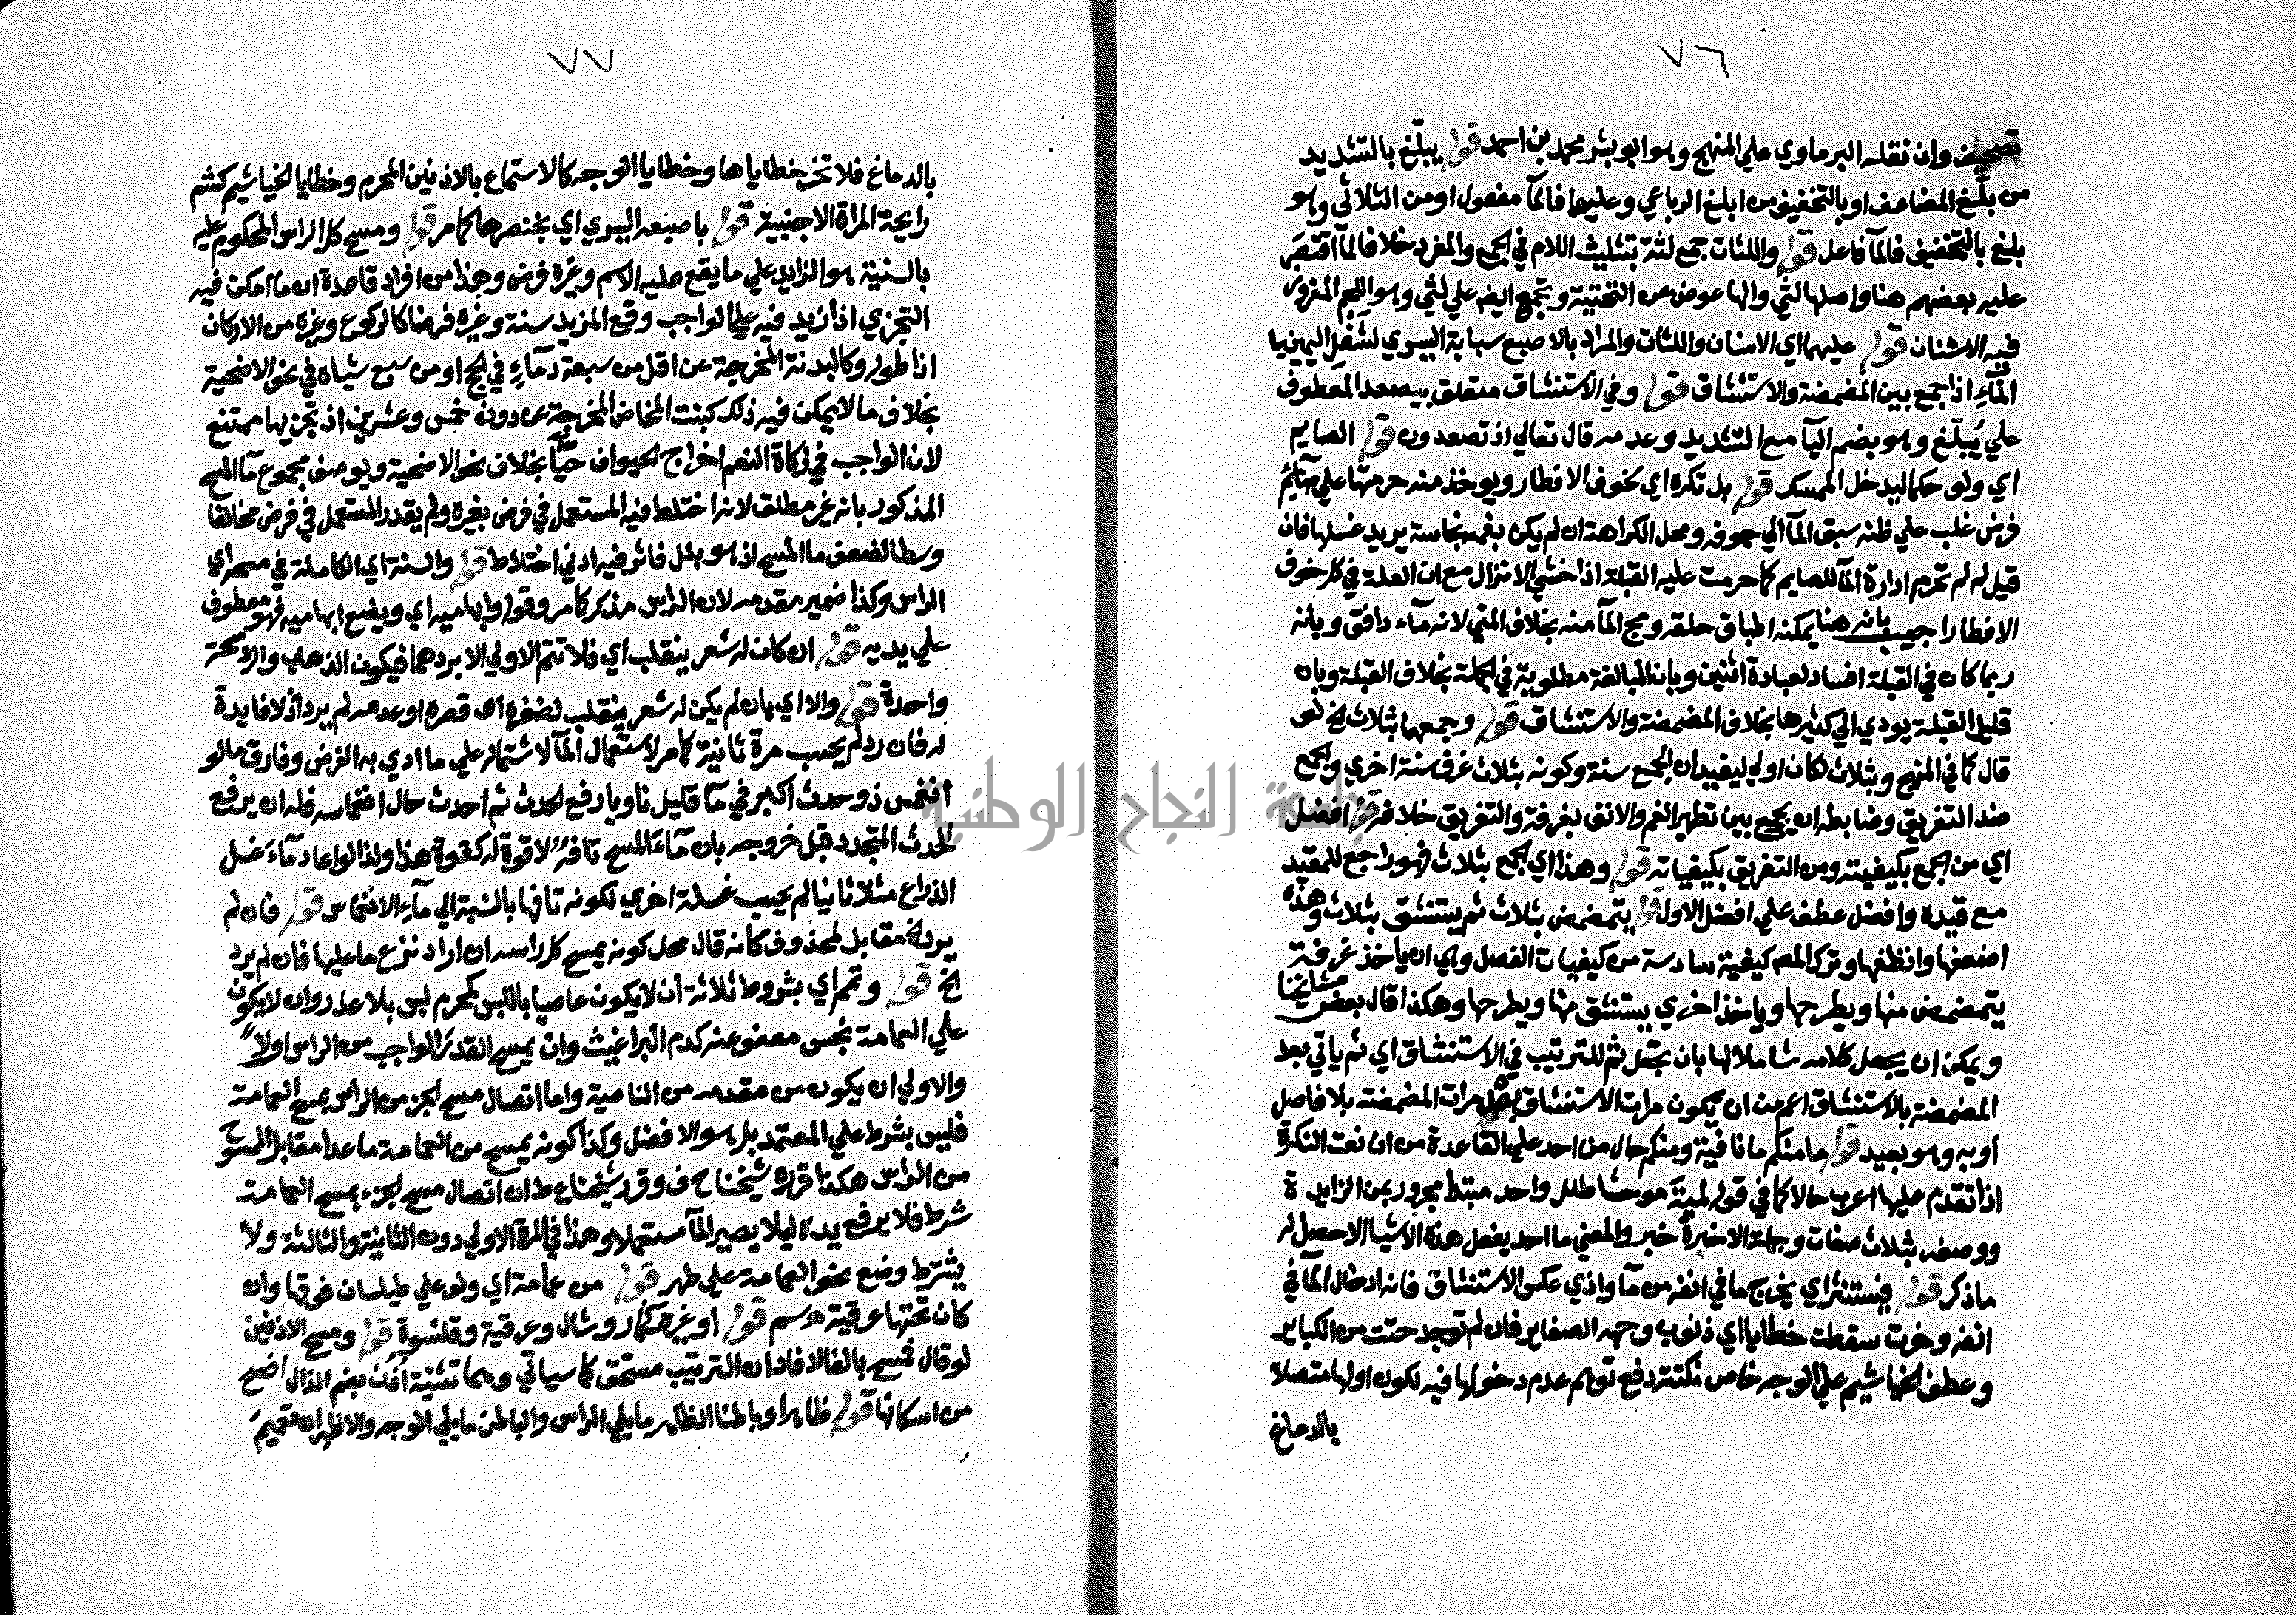 ٧٦
تصحيف وان نقله البرماوي علي المنهج وهو ابو بشر محمد بن احمد قوله يبلغ بالتشديد
من بلّغ المضاعف او بالتخفيف من ابلغ الرباعي وعليهما فالمآ مفعول او من الثلاثي وهو
بلغ بالتخفيف فالمآ فاعل قوله واللثات جمع لثة بتثليث اللام في الجمع والمفرد خلافا لمآ اقتصَر
عليه بعضهم هنا واصلها لثي والها عوض عن التحتية وتجمع ايضا علي لثي وهو اللحم المغروز
فيه الاسنان قوله عليهما اي الاسنان واللثات والمراد بالاصبع سبابة اليسري لشغل اليمني با
المآءِ اذا جمع بين المضمضة والاستنشاق قوله وفي الاستنشاق متعلق بيصعد المعطوف
علي يُبلّغ وهو بضم اليآ مع التشديد وعدمه قال تعالي اذ تصعدون قوله الصايم
اي ولو حكما ليدخل الممسك قوله بل تكره اي لخوف الافطار ويوخذ منه حرمتها علي صآيم
فرض غلب علي ظنه سبق المآ الي جوفه ومحل الكراهة ان لم يكن بفمه نجاسة يريد غسلها فان
قيل لم لم تحرم ادارة المآ للصايم كما حرمت عليه القبلة اذا خشي الانزال مع ان العلة في كل خوف
الافطار اجيب بانه هنا يمكنه اطباق حلقه ومج المآ منه بخلاف المني لانه مآء دافق وبانه
ربما كان في القبلة افساد لعبادة اثنين وبان المبالغة مطلوبة في الجملة بخلاف القبلة وبان
قليل القبلة يودي الي كثيرها بخلاف المضمضة والاستنشاق قوله وجمعها بثلاث الخ لو
قال كما في المنهج وبثلاث لكان اولي ليفيد ان الجمع سنة وكونه بثلاث غرف سنة اخري والجمع
ضد التفريق وضابطه ان يجمع بين تطهير الفم والانف بغرفة والتفريق خلافه قوله افضل
اي من الجمع بكيفيته ومن التفريق بكيفياته قوله وهذا اي الجمع بثلاث فهو راجع للمقيد
مع قيده وافضل عطف علي افضل الاول قوله يتمضمض بثلاث ثم يستنشق بثلاث وهذه
اضعفها وانظفها وترك المص كيفية سادسة من كيفيات الفصل وهي ان ياخذ غرفة
يتمضمض منها ويطرحها وياخذ اخري يستنشق منها ويطرحها وهكذا قال بعض مشايخنا
ويمكن ان يجعل كلامه شاملا لها بان يجعل ثم للترتيب في الاستنشاق اي ثم ياتي بعد
المضمضة بالاستنشاق اعم من ان يكون مرات الاستنشاق مرات المضمضة بلا فاصل
او به وهو بعيد قوله ما منكم ما نافية ومنكم حال من احد علي القاعدة من ان نعت النكرة
اذا تقدم عليها اعرب حالا كما في قوله لمية موحشا طلل واحد مبتدا مجرور بمن الزايدة
ووصفه بثلاث صفات وجملة الاخيرة خبر والمعني ما احد يفعل هذه الاشيا الا حصل له
ماذكر قوله فيستنثر اي يخرج ما في انفه من مآ واذي عكس الاستنشاق فانه ادخال المآ في
انفه وخرت سقطت خطايا اي ذنوب وجهه الصغاير فان لم توجد حتت من الكباير
وعطف الخياشيم علي الوجه خاص نكتته دفع توهم عدم دخولها فيه لكون اولها متصلا
بالدماغ
٧٧
بالدماغ فلا تخر خطاياها وخطايا الوجه كالاستماع بالاذنين المحرم وخطايا الخياشيم كشم
رايحة المراة الاجنبية قوله باصبعه اليسري اي بخنصرها كما مر قوله ومسح كل الراس المحكوم عليه
بالسنية هو الزايد علي ما يقع عليه الاسم وغيره فرض وهذا من افراد قاعدة ان ما امكن فيه
التجزي اذا زيد فيه علي الواجب وقع المزيد سنة وغيره فرضا كالركوع وغيره من الاركان
اذا طوله وكالبدنة المخرجة عن اقل من سبعة دمآءٍ في الحج او من سبع شياه في نحو الاضحية
بخلاف ما لا يمكن فيه ذلك كبنت المخاض المخرجة عن دون خمس وعشرين اذ تجزيها ممتنع
لان الواجب في زكاة النعم اخراج الحيوان حيًّا بخلاف نحو الاضحية ويوصف مجموع مآ المسح
المذكور بانه غير مطلق لانه اختلط فيه المستعمل في فرض بغيره ولم يقدر المستعمل في فرض مخالفا
وسطا لضعف ما المسح اذ هو بلل فاثر فيه ادني اختلاط قوله والسنة اي الكاملة في مسحه اي
الراس وكذا ضمير مقدمه لان الراس مذكر كما مر وقوله وابهاميه اي ويضع ابهاميه فهو معطوف
علي يديه قوله ان كان له شعر ينقلب اي فلا تتم الاولي الا بردهما فيكون الذهاب والرد مسحة
واحدة قوله والا اي بان لم يكن له شعر ينقلب لضفره اي قصره او عدمه لم يرد اذ لا فايدة
له فان رد لم يحسب مرة ثانية كما مر لاستعمال المآ لاشتماله علي ما ادي به الفرض وفارق ما لو
انغمس ذو حدث اكبر في مآ قليل ناويا رفع الحدث ثم احدث حال انغماسه فله ان يرفع
الحدث المتجدد قبل خروجه بان مآء المسح تافهٌ لا قوة له كقوة هذا ولذا لو اعاد مآء غسل
الذراع مثلا ثانيا لم يحسب غسلة اخري لكونه تافها بالنسبة الي مآءِ الانغماس قوله فان لم
يرد الخ مقابل لمحذوف كانه قال محل كونه يمسح كل راسه ان اراد نزع ما عليها فان لم يرد
الخ قوله وتمم اي بشروط ثلاثة أن لا يكون عاصيا باللبس كمحرم لبس بلا عذر وان لا يكون
علي العمامة نجس معفو عنه كدم البراغيث وان يمسح القدر الواجب من الراس اولاً
والاولي ان يكون من مقدمه من الناصية واما اتصال مسح الجزء من الراس بمسح العمامة
فليس بشرط علي المعتمد بل هو الافضل وكذا كونه يمسح من العمامة ما عدا مقابل الممسوح
من الراس هكذا قرره شيخنا ح ف وقرر شيخنا ع ط ان اتصال مسح الجزء بمسح العمامة
شرط فلا يرفع يده ليلا يصير المآ مستعملا وهذا في المرة الاولي دون الثانية والثالثة ولا
يشترط وضع نحو العمامة علي طهر قوله من عمامة اي ولو علي طيلسان فوقها وان
كان تحتها عرقية قوله او غيرها كخمار وشال وعرقية وقلنسوة قوله ومسح الاذنين
لو قال فمسح بالفا لافاد ان الترتيب مستحق كما سياتي وهما تثنية أذُن بضم الذال افصح
من اسكانها قوله ظاهرا وباطنا الظاهر ما يلي الراس والباطن ما يلي الوجه والاظهر ان تعميمَ
جامعة النجاح الوطنية